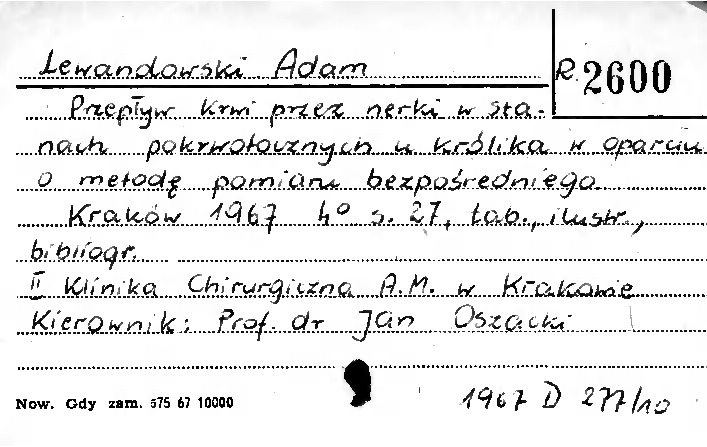 Lewandowski Adam
R. 2600
Przepływ krwi przez nerki w sta-
nach pokrwotocznych u królika w oparciu
o metodę pomiaru bezpośredniego
Kraków 1967 4° s. 27, tab., ilustr.,
bibliogr.
II Klinika Chirurgiczna A.M. w Krakowie
Kierownik: Prof. dr Jan Oszacki
Now. Gdy zam. 575 67 10000
1967 D 277/10